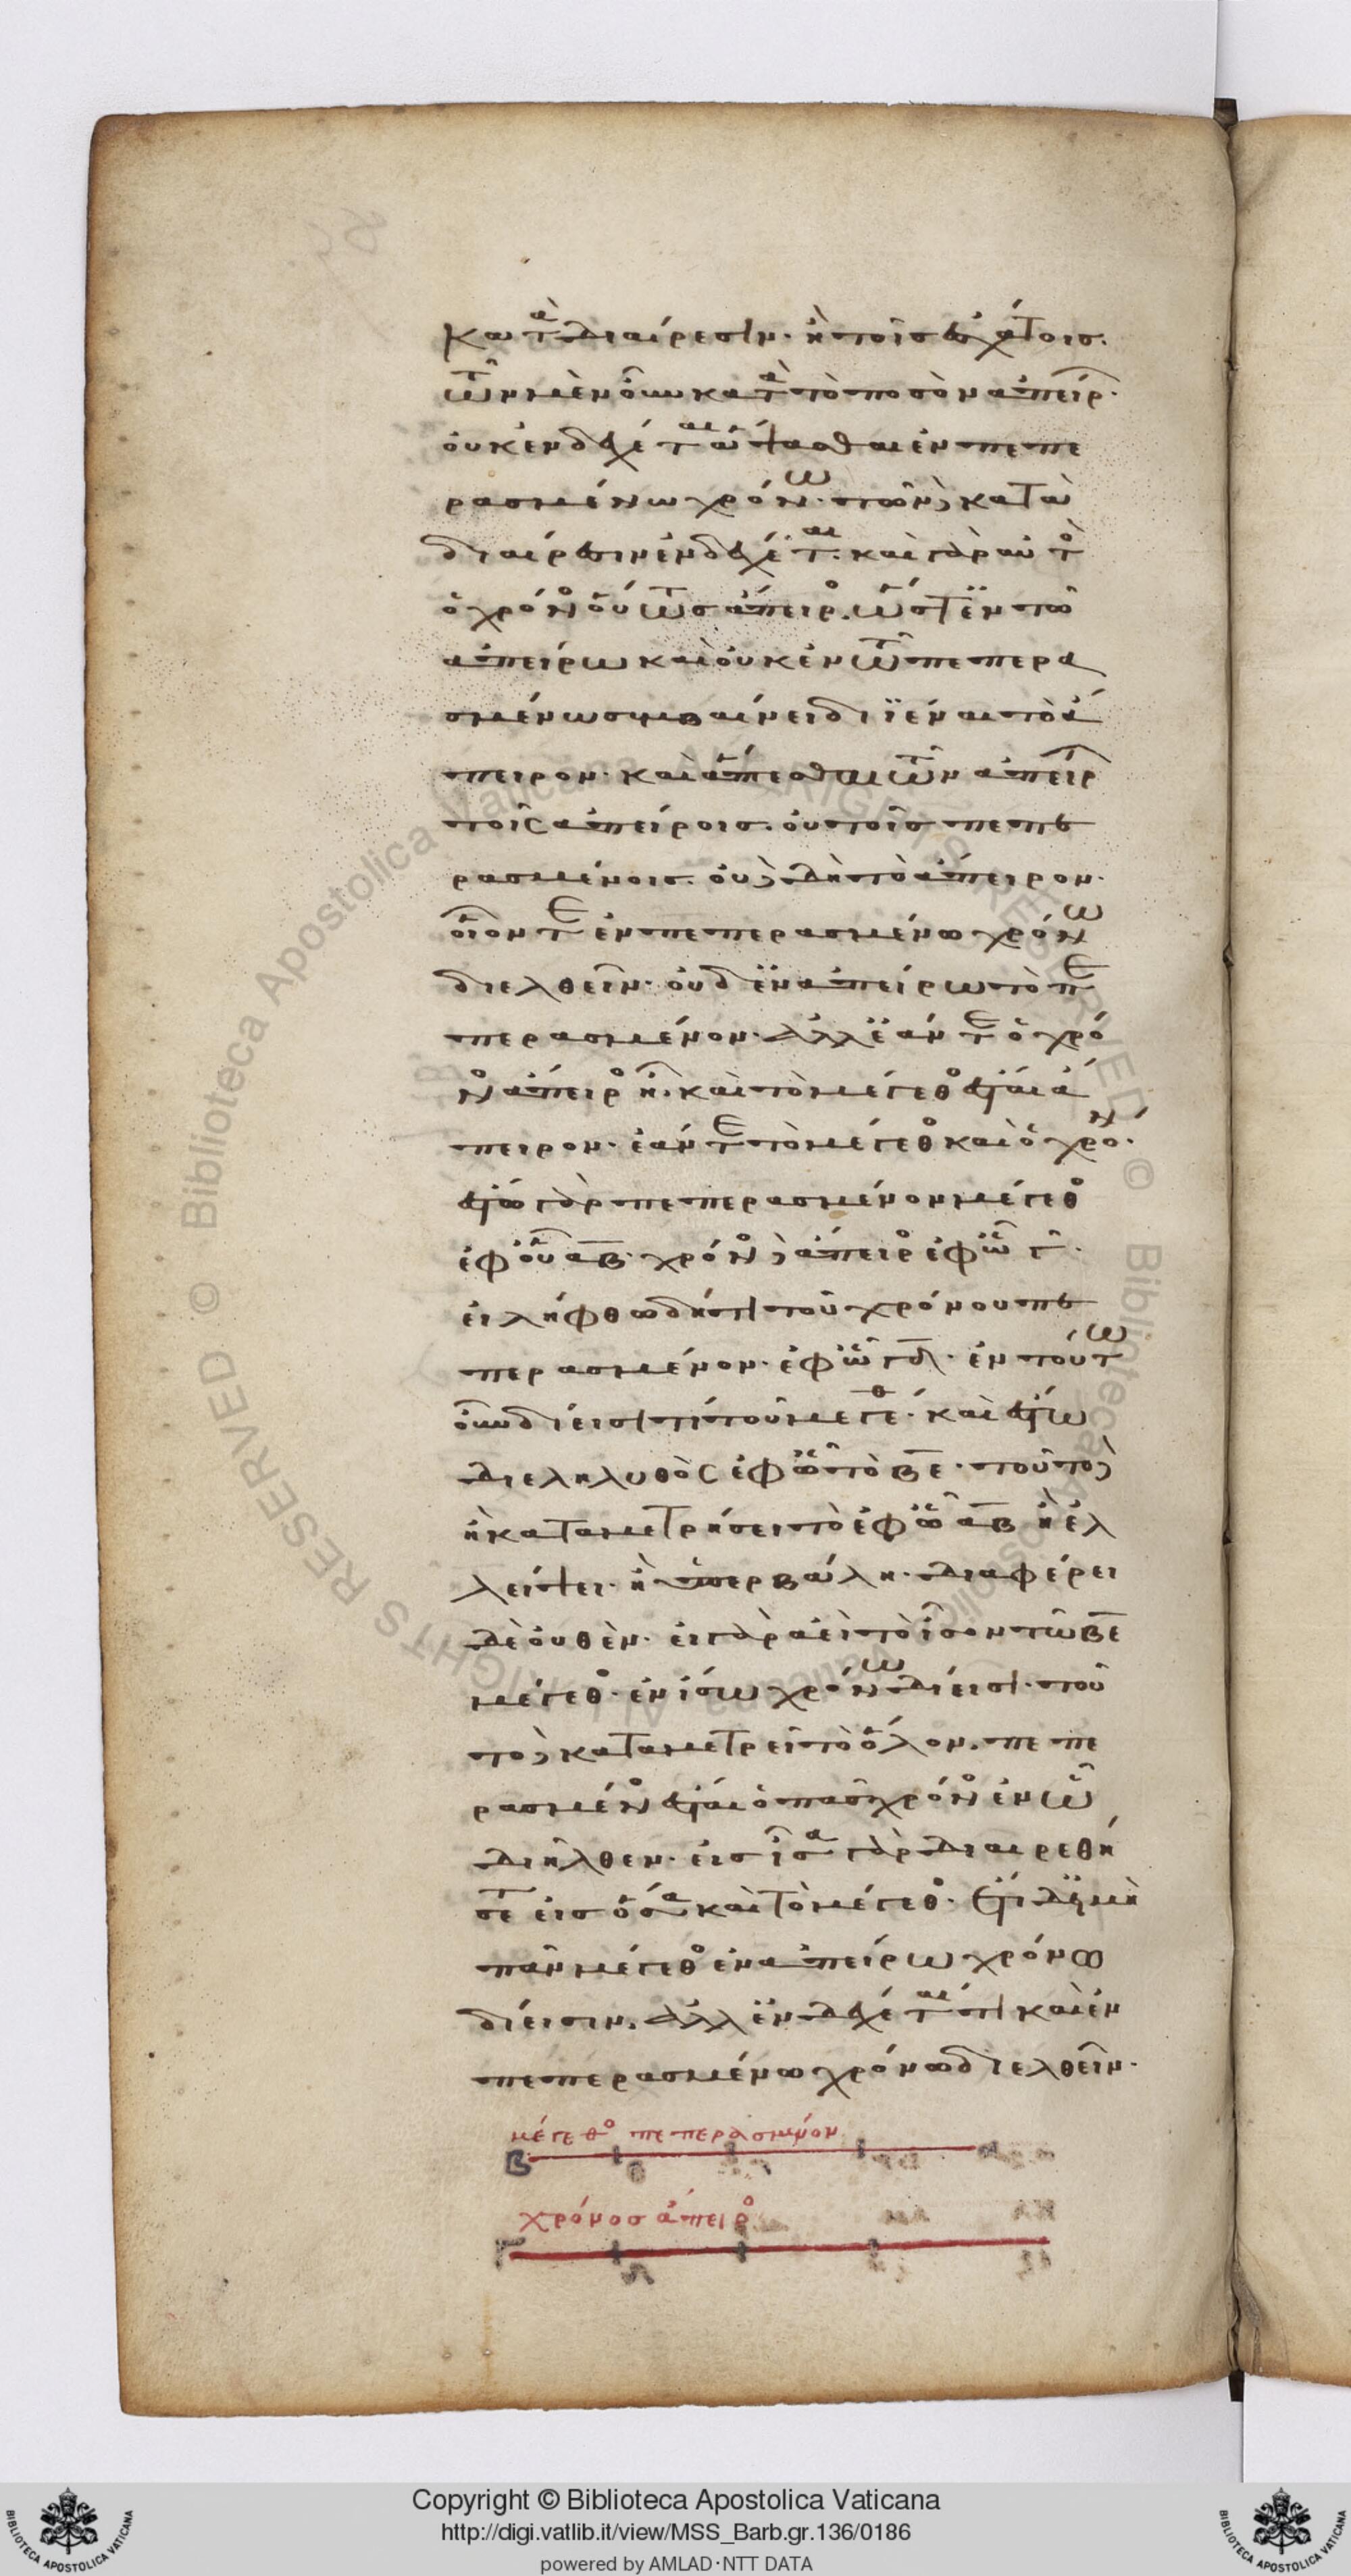 κατὰ διαίρεσιν· ἢ τοῖς ἐσχάτοις.
τῶν μὲν οὖν κατὰ τὸ ποσὸν ἀπείρ·
οὐκ ἐνδέχεται ἅψασθαι ἐν πεπε
ρασμένω χρόνω· τῶν δὲ κατὰ
διαίρεσιν ἐνδέχεται· καὶ γὰρ αὐτὸ
ὁ χρόνος οὕτως ἄπειρος. ὥστε ἐν τῶ
ἀπείρω καὶ οὐκ ἐν τῶ πεπερα
σμένω συμβαίνει διϊέναι τὸ ἄ
πειρον· καὶ ἅπτεσθαι τῶν ἀπείρ
τοῖς ἀπείροις. οὐ τοῖς πεπε
ρασμένοις. οὔτε δὴ τὸ ἄπειρον·
οἷόν τε ἐν πεπερασμένω χρόνω
διελθεῖν· οὔτ' ἐν ἀπείρω τὸ πε
περασμένον· ἀλλ' ἐάν τε ὁ χρό
νος ἄπειρος ἦ. καὶ τὸ μέγεθος ἔσται ἄ
πειρον· ἐάν τε τὸ μέγεθος καὶ ὁ χρόν·
ἔστω γὰρ πεπερασμένον μέγεθος
ἐφ' οὗ αβ· χρόνος δὲ ἄπειρος ἐφ' ὧ γ·
εἰλήφθω δή τι τοῦ χρόνου πε
περασμένον· ἐφ' ὧ γδ· ἐν τούτω
οὖν δίεισί τι τοῦ μεγέθ· καὶ ἔστω
διεληλυθὸς ἐφ' ὧ τὸ βε· τοῦτο δὲ
ἢ καταμετρήσει τὸ ἐφ' ὧ αβ ἢ ἐλ
λείψει· ἢ ὑπερβάλη· διαφέρει
δὲ οὐθὲν· εἰ γὰρ ἀεὶ τὸ ἴσον τῶ βε
μέγεθος· ἐν ἴσω χρόνω δίεισι· τοῦ
το δὲ καταμετρεῖ τὸ ὅλον. πεπε
ρασμένος ἔσται ὁ πᾶς χρόνος ἐν ὧ
διῆλθεν· εἰς ἴσα γὰρ διαιρεθή
σεται εἰς ὅσα καὶ τὸ μέγεθος· ἔτι δ' εἰ μὴ
πᾶν μέγεθος ἐν ἀπείρω χρόνω
δίεισιν. ἀλλ' ἐνδέχεταί τι καὶ ἐν
πεπερασμένω χρόνω διελθεῖν·
μέγεθος πεπερασμένον
Β
χρόνος ἄπειρος
Γ